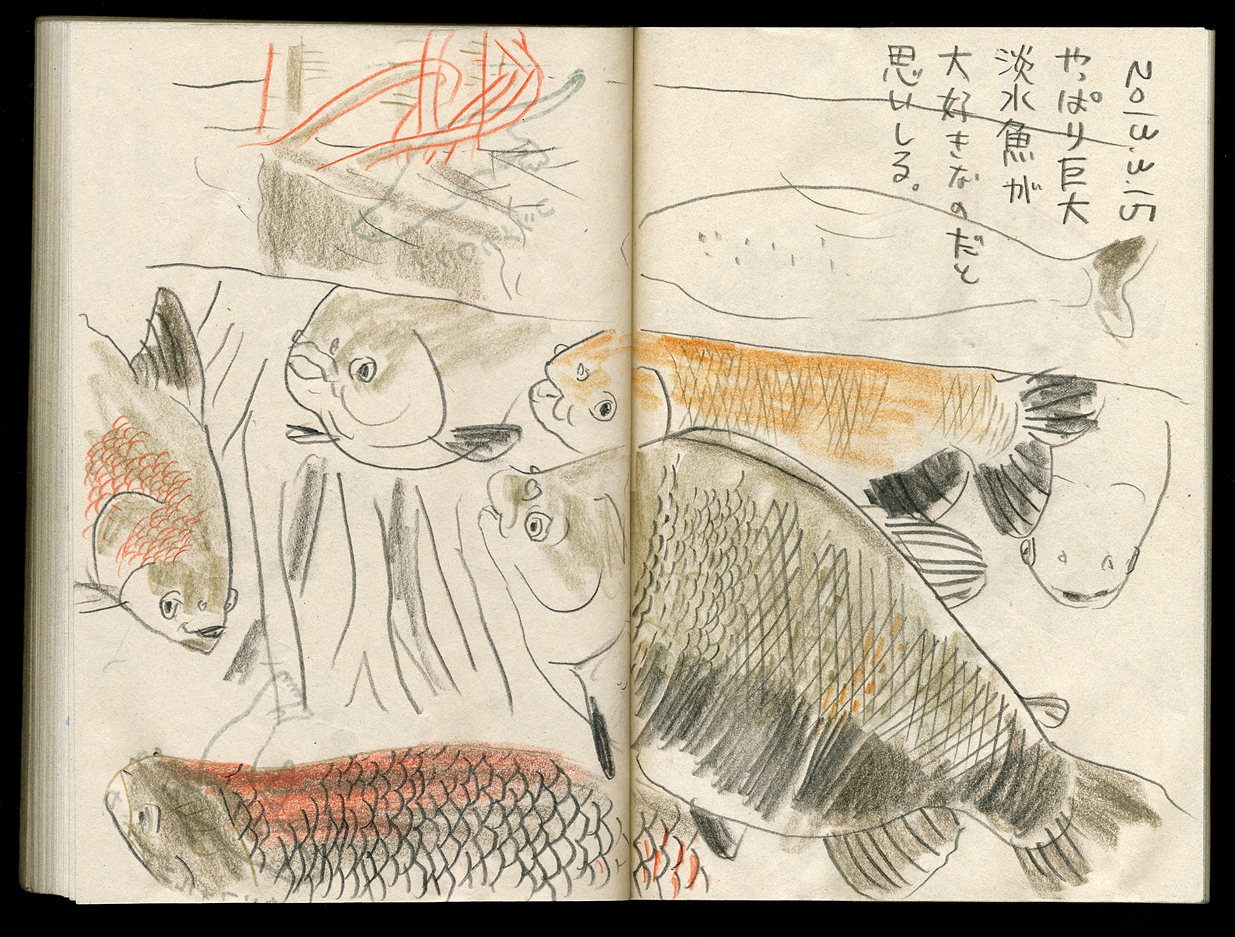 2013.3.15
やっぱり巨大
淡水魚が
大好きなのだと
思いしる。